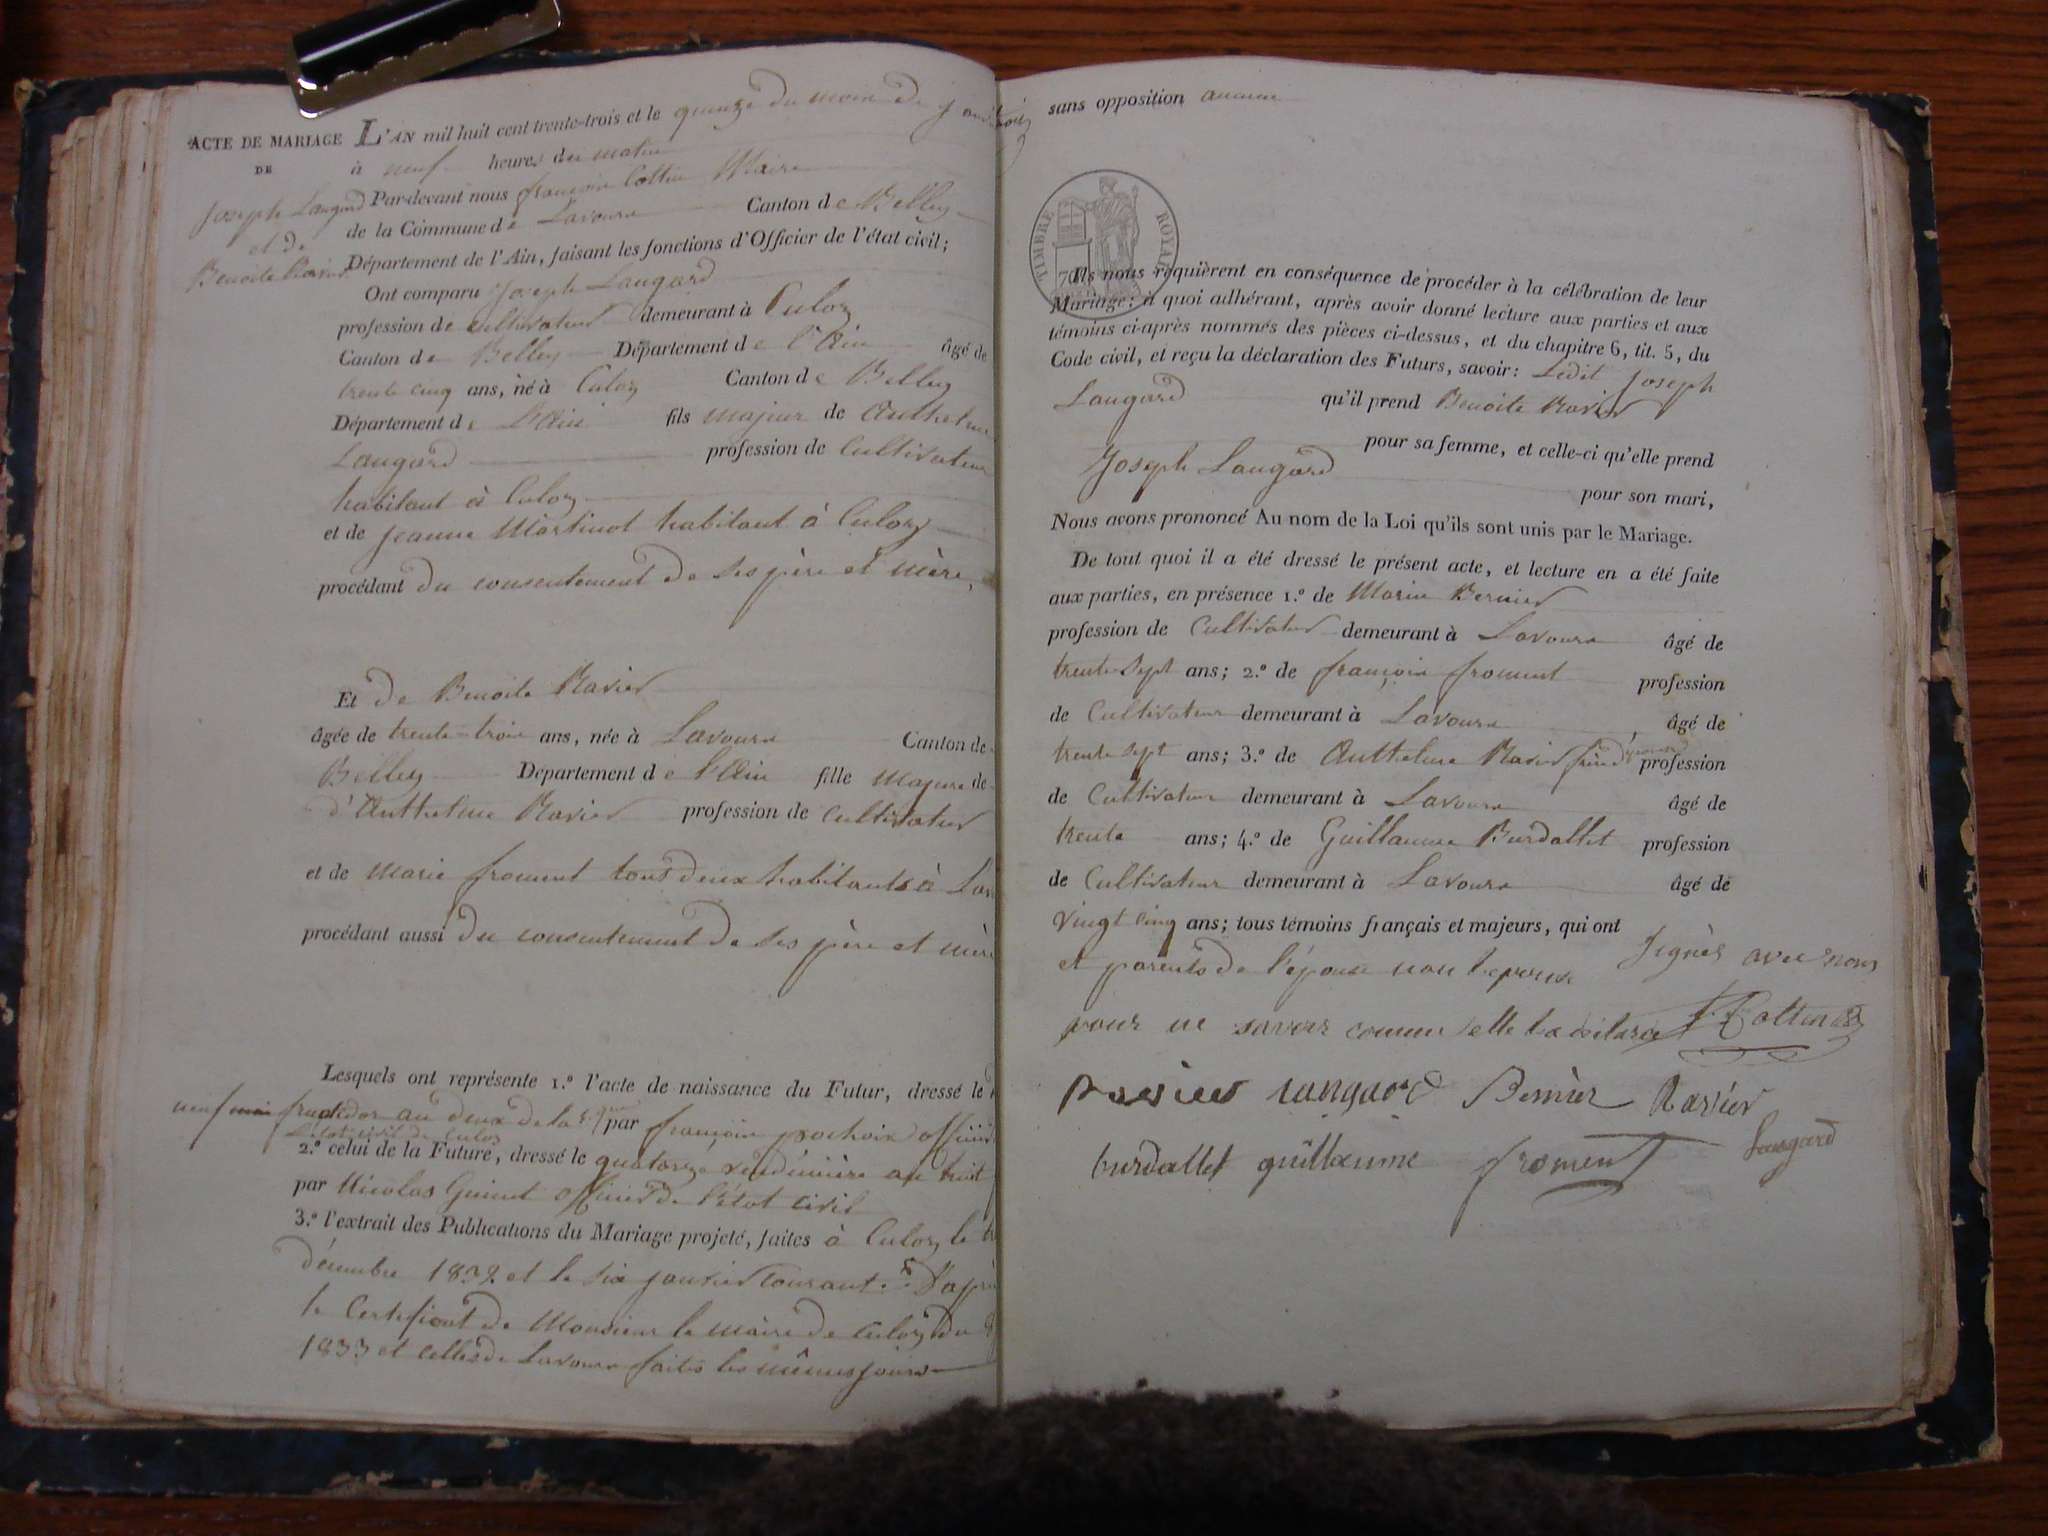 ACTE DE MARIAGE
DE
Joseph Laugard
et de
Benoite Ravier
L'AN mil huit cent trente-trois et le quinze du mois de janvier
à neuf heures du matin
Par-devant nous françois Cottin Maire
de la Commune de Lavours Canton de Belley
Département de l'Ain, faisant les fonctions d'Officier de l'état civil;
Ont comparu Joseph Laugard
profession de cultivateur demeurant à Culoz
Canton de Belley Département de l'Ain âgé de
trente cinq ans, né à Culoz Canton de Belley
Département de L'Ain fils majeur de Anthelme
Laugard profession de Cultivateur
habitant à Culoz
et de jeanne Martinot habitant à Culoz
procédant du consentement de ses père et mère,
Et de Benoite Ravier
âgée de trente-trois ans, née à Lavours Canton de
Belley Département de l'Ain fille majeure de
d'Anthelme Ravier profession de cultivateur
et de marie froment tous deux habitants à Lav
procédant aussi du consentement de ses père et mère
Lesquels ont représenté 1.º l'acte de naissance du Futur, dressé le
neuf fructidor an deux de la par françois pochoix officier
L'état civil de Culoz
2.º celui de la Future, dressé le quatorze vendémière an huit
par Nicolas Guinet officier de l'état civil
3.º l'extrait des Publications du Mariage projeté, faites à Culoz le
décembre 1832 et le six janvier Courant. D'après
le Certificat de Monsieur le maire de Culoz du
1833 et celles de Lavours faites les mêmes jours
sans opposition aucune
TIMBRE ROYAL
70
Ils nous requièrent en conséquence de procéder à la célébration de leur
Mariage: à quoi adhérant, après avoir donné lecture aux parties et aux
témoins ci-après nommés des pièces ci-dessus, et du chapitre 6, tit. 5, du
Code civil, et reçu la déclaration des Futurs, savoir: Ledit Joseph
Laugard qu'il prend Benoite Ravier
pour sa femme, et celle-ci qu'elle prend
Joseph Laugard
pour son mari,
Nous avons prononcé Au nom de la Loi qu'ils sont unis par le Mariage.
De tout quoi il a été dressé le présent acte, et lecture en a été faite
aux parties, en présence 1.º de Marin Bernier
profession de Cultivateur demeurant à Lavours âgé de
trente-sept ans; 2.º de françois froment profession
de Cultivateur demeurant à Lavours âgé de
trente sept ans; 3.º de Anthelme Ravier profession
de Cultivateur demeurant à Lavours âgé de
trente ans; 4.º de Guillaume Burdallet profession
de Cultivateur demeurant à Lavours âgé de
vingt cinq ans; tous témoins français et majeurs, qui ont signés avec nous
et parents de l'épouse non l'épouse
pour ne savoir comme elle l'a déclaré Cottin
Ravier Laugard Bernier Ravier
burdallet guillaume froment Laugard